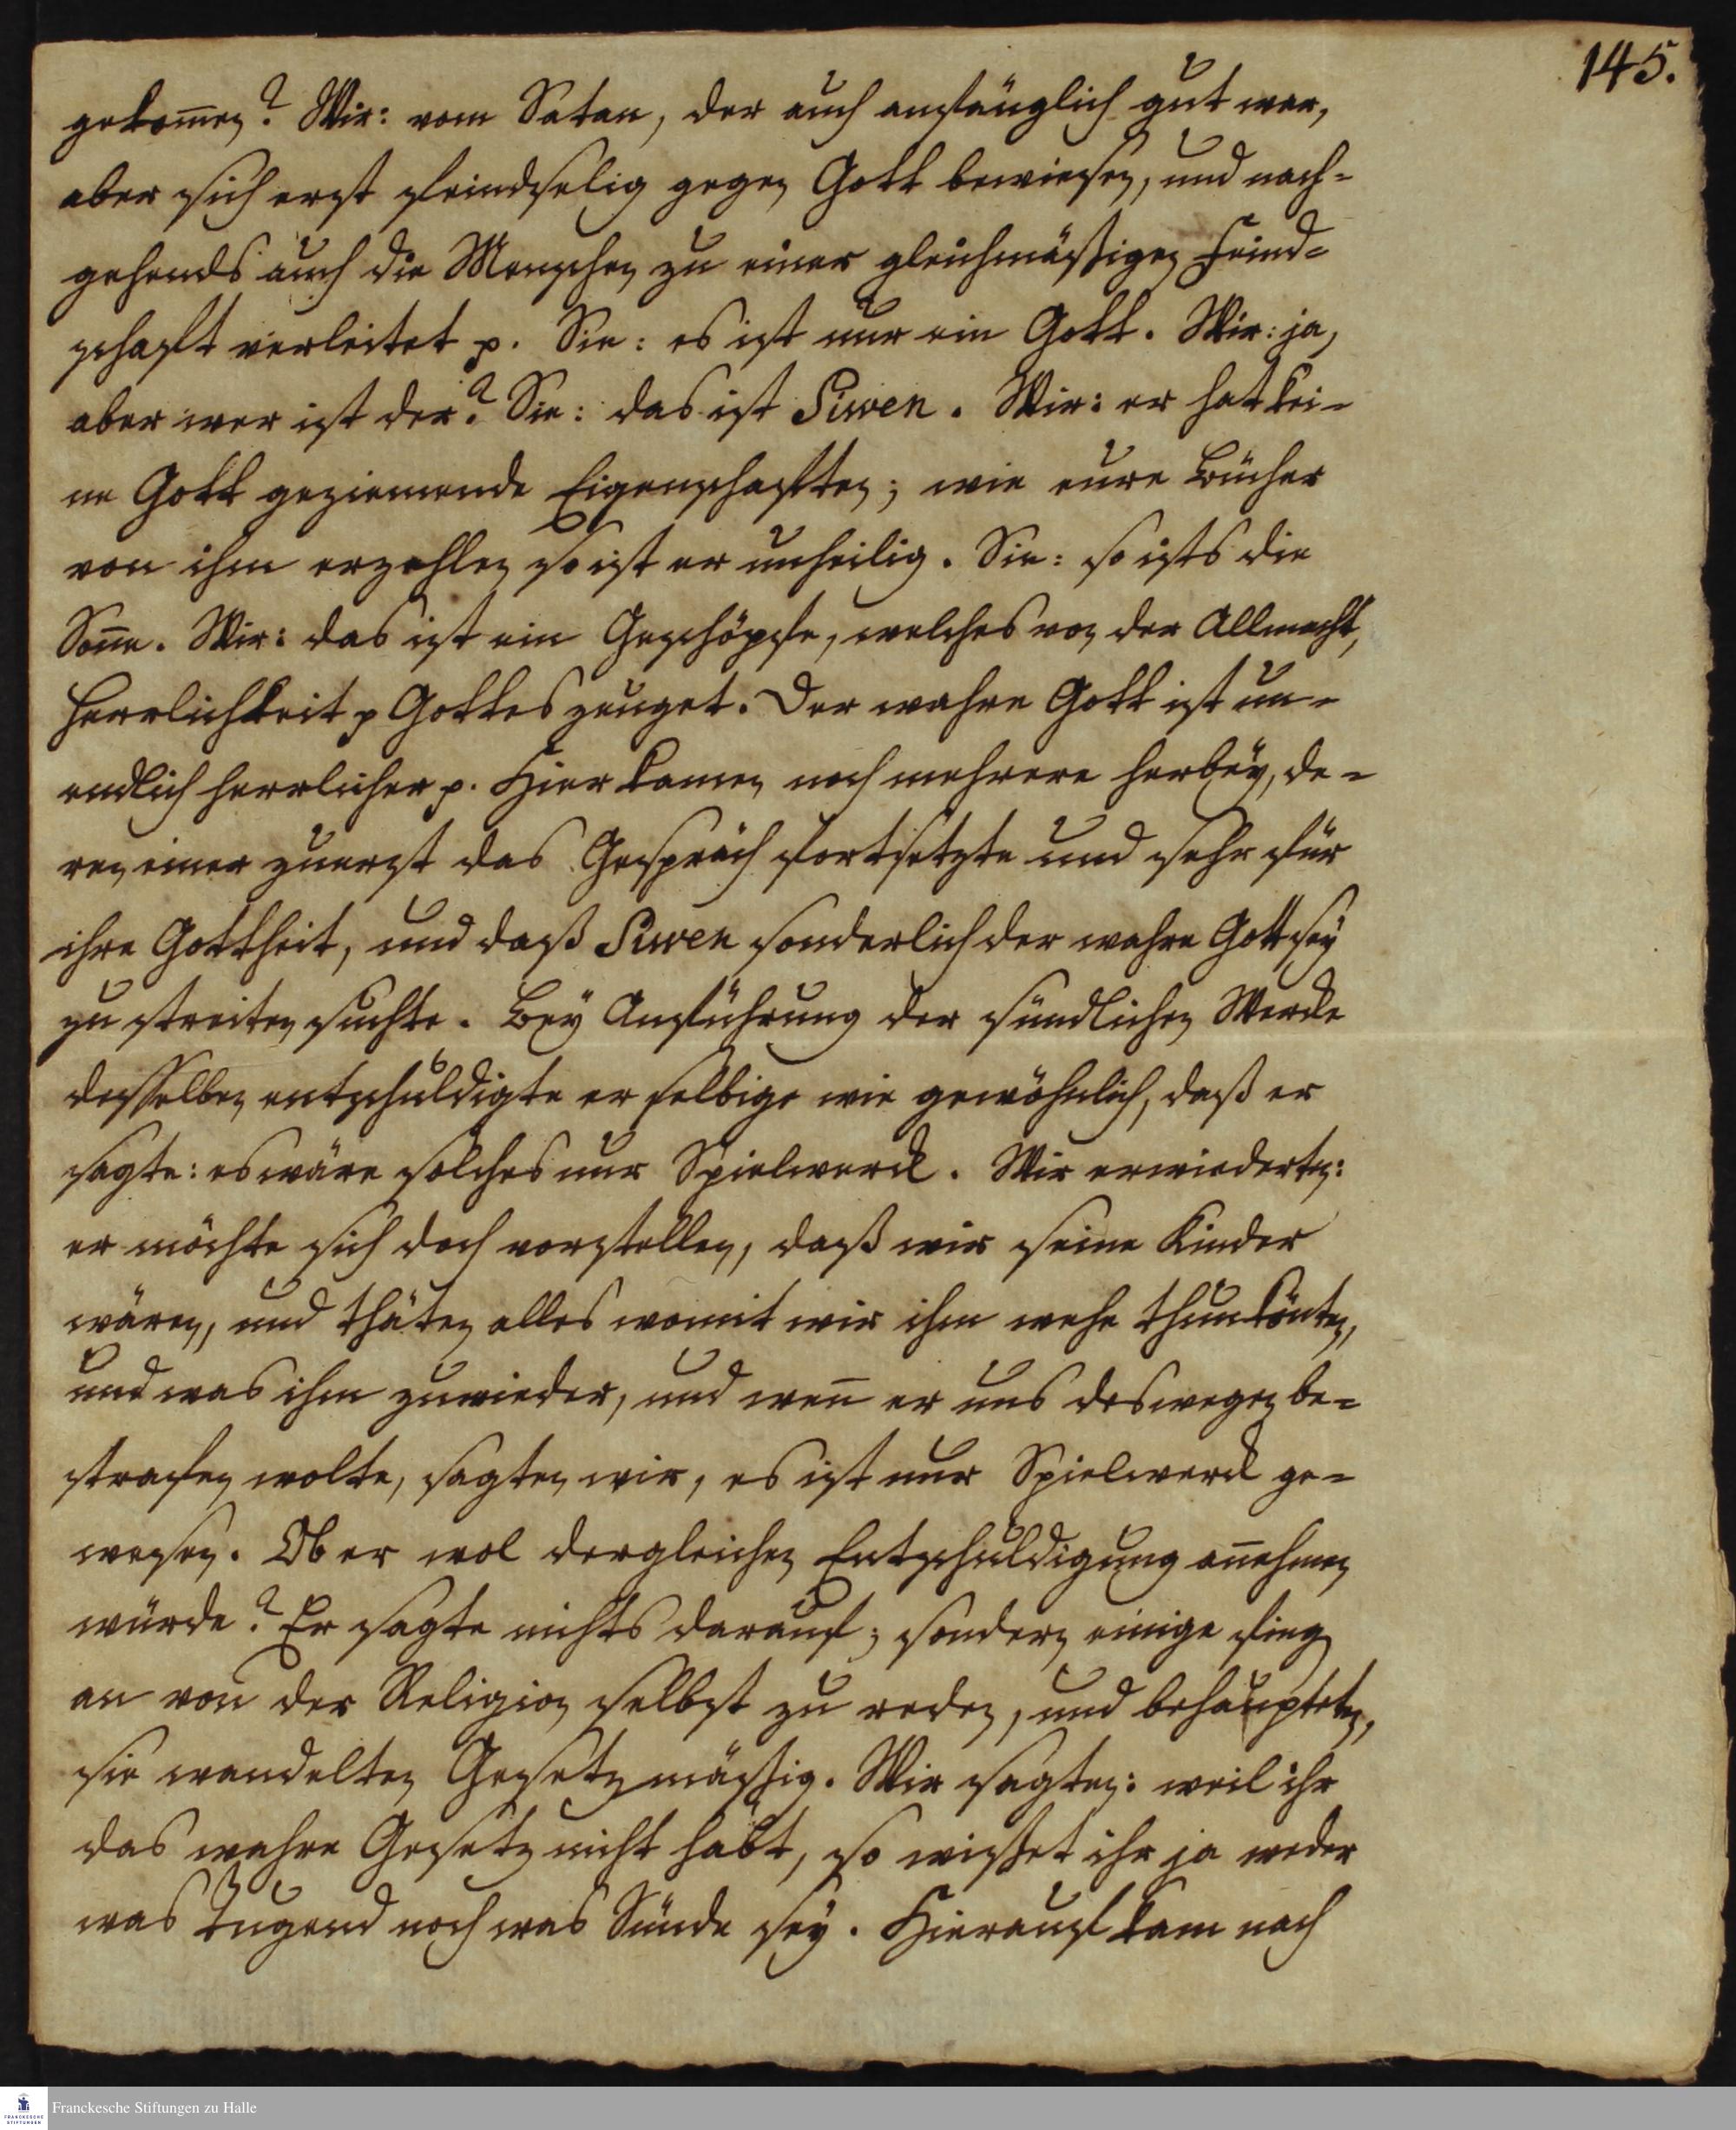 145.
gekom̅en? Wir: vom Satan, der auch anfänglich gut war,
aber sich erst feindselig gegen Gott bewiesen, und nach-
gehends auch die Menschen zu einer gleichmäßigen Feind-
schaft verleitet p. Sie: es ist nur ein Gott. Wir: ja,
aber wer ist der? Sie: das ist Siwen. Wir: er hat kei-
ne Gott geziemende Eigenschafften; wie eure Bücher
von ihm erzehlen so ist er unheilig. Sie: so ists die
Son̅e. Wir: das ist ein Geschöpfe, welches von der Allmacht,
Herrlichkeit p Gottes zeuget. Der wahre Gott ist un-
endlich herrlicher p. Hier kamen noch mehrere herbey, de-
ren einer zuerst das Gespräch fortsetzte und sehr für
ihre Gottheit, und daß Siwen sonderlich der wahre Gott sey
zu streiten suchte. Bey Anführung der sündlichen Wercke
desselben entschuldigte er selbige wie gewöhnlich, daß er
sagte: es wäre solches nur Spielwerck. Wir erwiederten:
er möchte sich doch vorstellen, daß wir seine Kinder
wären, und thäten alles womit wir ihm wehe thun könten,
und was ihm zuwieder, und wen̅ er uns deswegen be-
strafen wolte, sagten wir, es ist nur Spielwerck ge-
wesen. Ob er wol dergleichen Entschuldigung an̅ehmen
würde? Er sagte nichts darauf; sondern einige fing
an von der Religion selbst zu reden, und behaupteten,
sie wandelten Gesetzmäßig. Wir sagten: weil ihr
das wahre Gesetz nicht habt, so wisset ihr ja weder
was Tugend noch was Sünde sey. Hierauf kam nach
Franckesche Stiftungen zu Halle